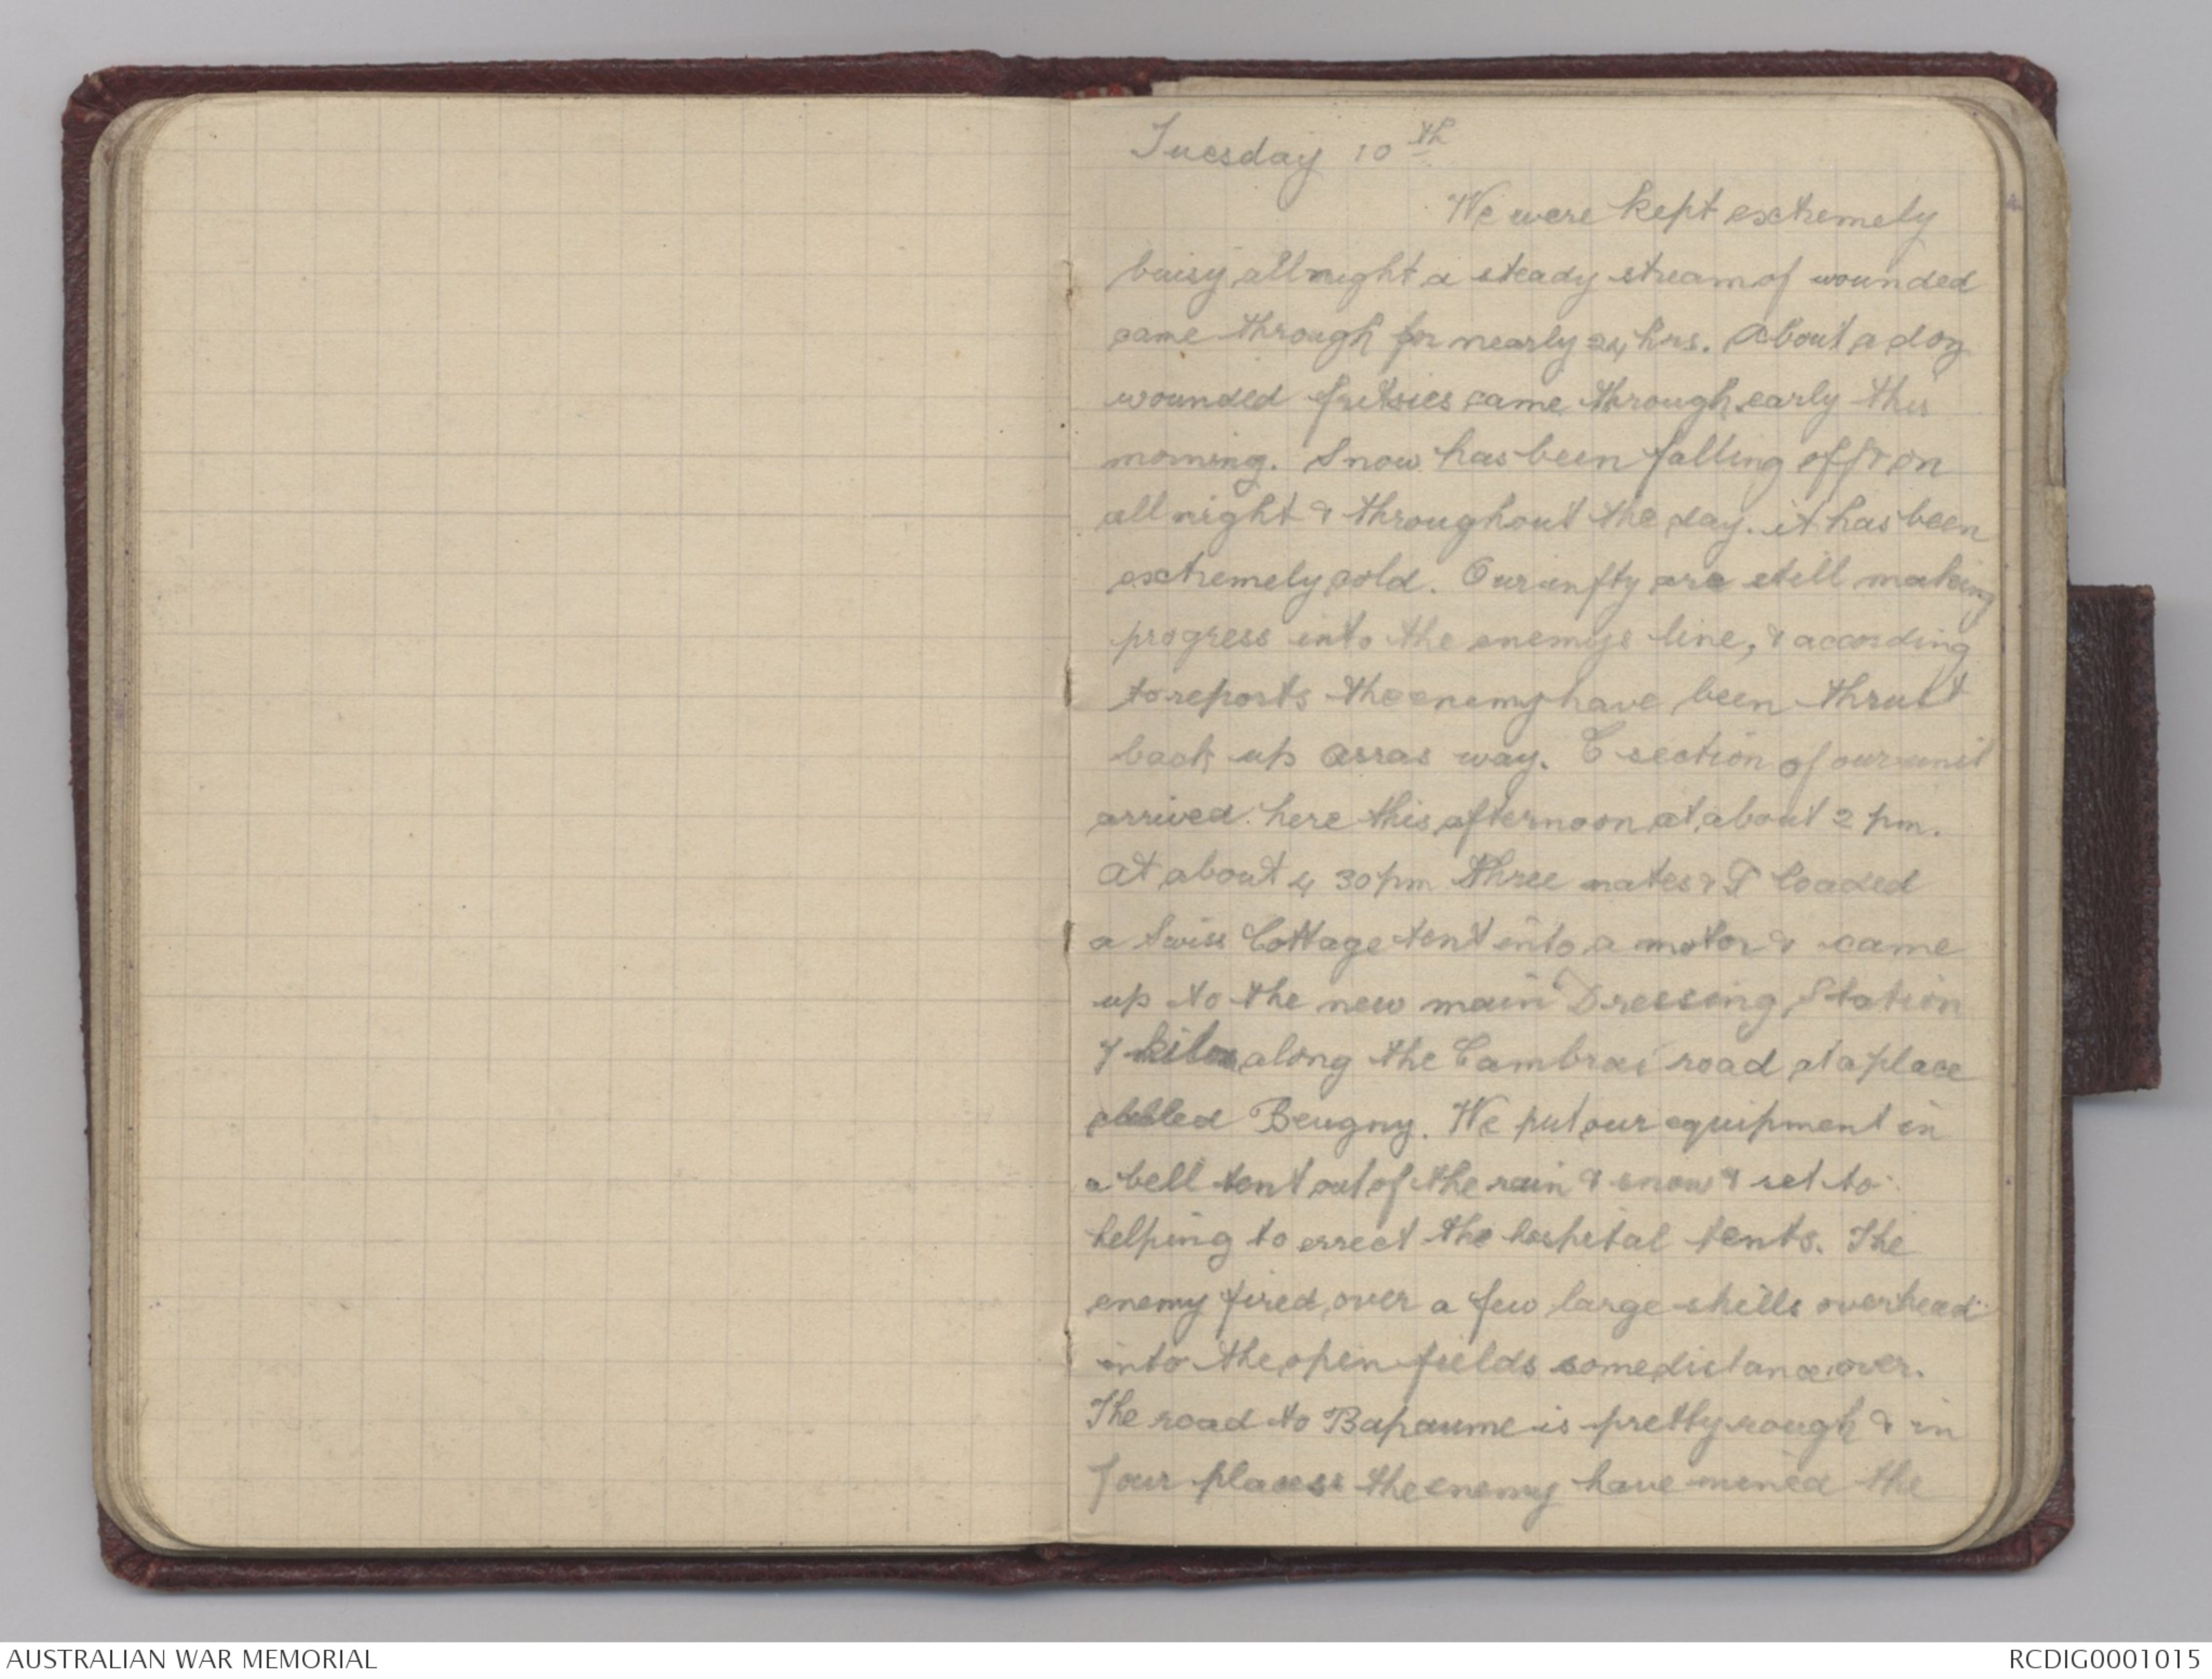 Tuesday 10th
We were kept extremely
buisy all night a steady stream of wounded
came through for nearly 24 hrs. About a doz
wounded fritsies came through early this
morning. Snow has been falling off & on
all night & throughout the day. it has been
extremely cold. Our infty are still making
progress into the enemys line, & according
to reports the enemy have been thrust
back up Arras way. C section of our unit
arrived here this afternoon at about 2 pm.
At about 4 30 pm three mates & I loaded
a Swiss Cottage tent into a motor & came
up to the new main Dressing Station
7 kilos along the Cambrai road at a place
called Beugny. We put our equipment in
a bell tent out of the rain & snow & set to
helping to errect the hospital tents. The
enemy fired over a few large shells overhead
into the open fields some distance over.
The road to Bapaume is pretty rough & in
four places the enemy have mined the
AUSTRALIAN WAR MEMORIAL
RCDIG0001015